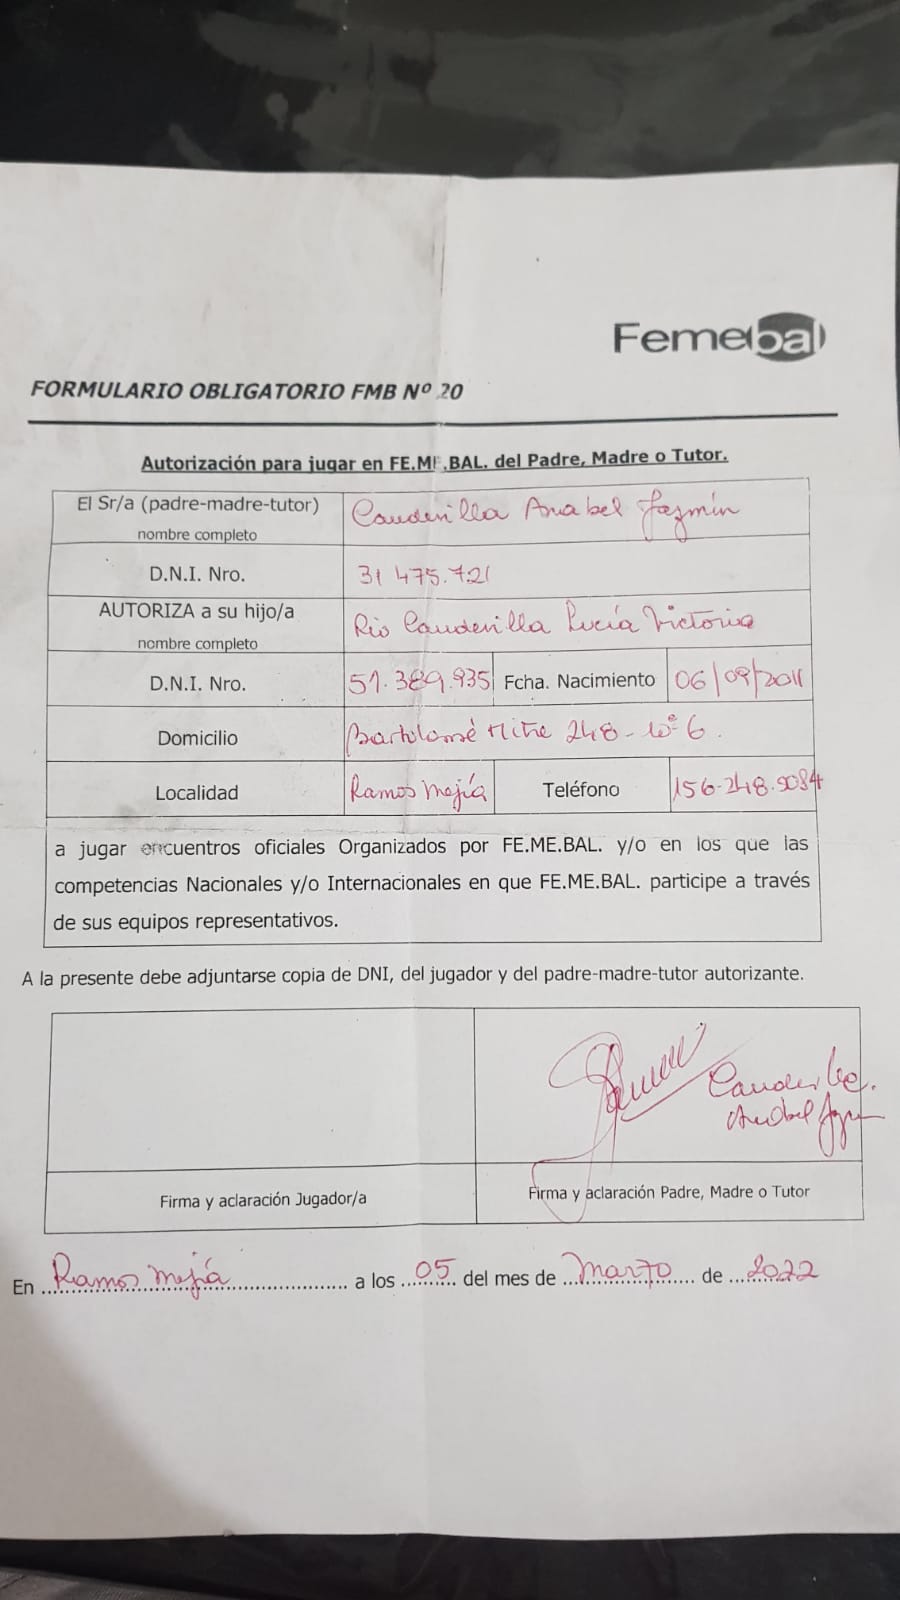 Femebal
FORMULARIO OBLIGATORIO FMB Nº 20
Autorización para jugar en FE.ME.BAL. del Padre, Madre o Tutor.
El Sr/a (padre-madre-tutor) Cauderilla Anabel Jazmín
nombre completo
D.N.I. Nro. 31 475.721
AUTORIZA a su hijo/a Rio Cauderilla Lucía Victoria
nombre completo
D.N.I. Nro. 51.389.935 Fcha. Nacimiento 06/09/2011
Domicilio Bartolomé Mitre 248 - 6.
Localidad Ramos Mejía Teléfono 156-248.9084
a jugar encuentros oficiales Organizados por FE.ME.BAL. y/o en los que las
competencias Nacionales y/o Internacionales en que FE.ME.BAL. participe a través
de sus equipos representativos.
A la presente debe adjuntarse copia de DNI, del jugador y del padre-madre-tutor autorizante.
Cauderilla
Anabel
Firma y aclaración Jugador/a Firma y aclaración Padre, Madre o Tutor
En Ramos Mejía a los 05 del mes de Marzo de 2022